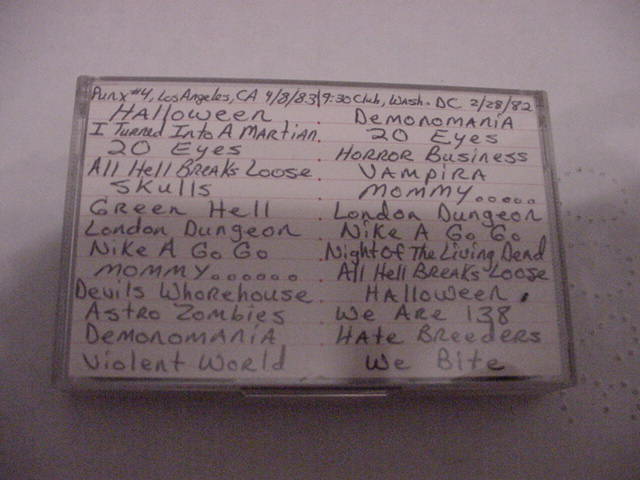 Punx #4, Los Angeles, CA 4/8/83 | 9:30 Club, Wash. DC 2/28/82
Halloween
I Turned Into A Martian
20 Eyes
All Hell Breaks Loose
Skulls
Green Hell
London Dungeon
Nike A Go Go
Mommy......
Devils Whorehouse
Astro Zombies
Demonomania
Violent World
Demonomania
20 Eyes
Horror Business
Vampira
Mommy.....
London Dungeon
Nike A Go Go
Night Of The Living Dead
All Hell Breaks Loose
Halloween
We Are 138
Hate Breeders
We Bite